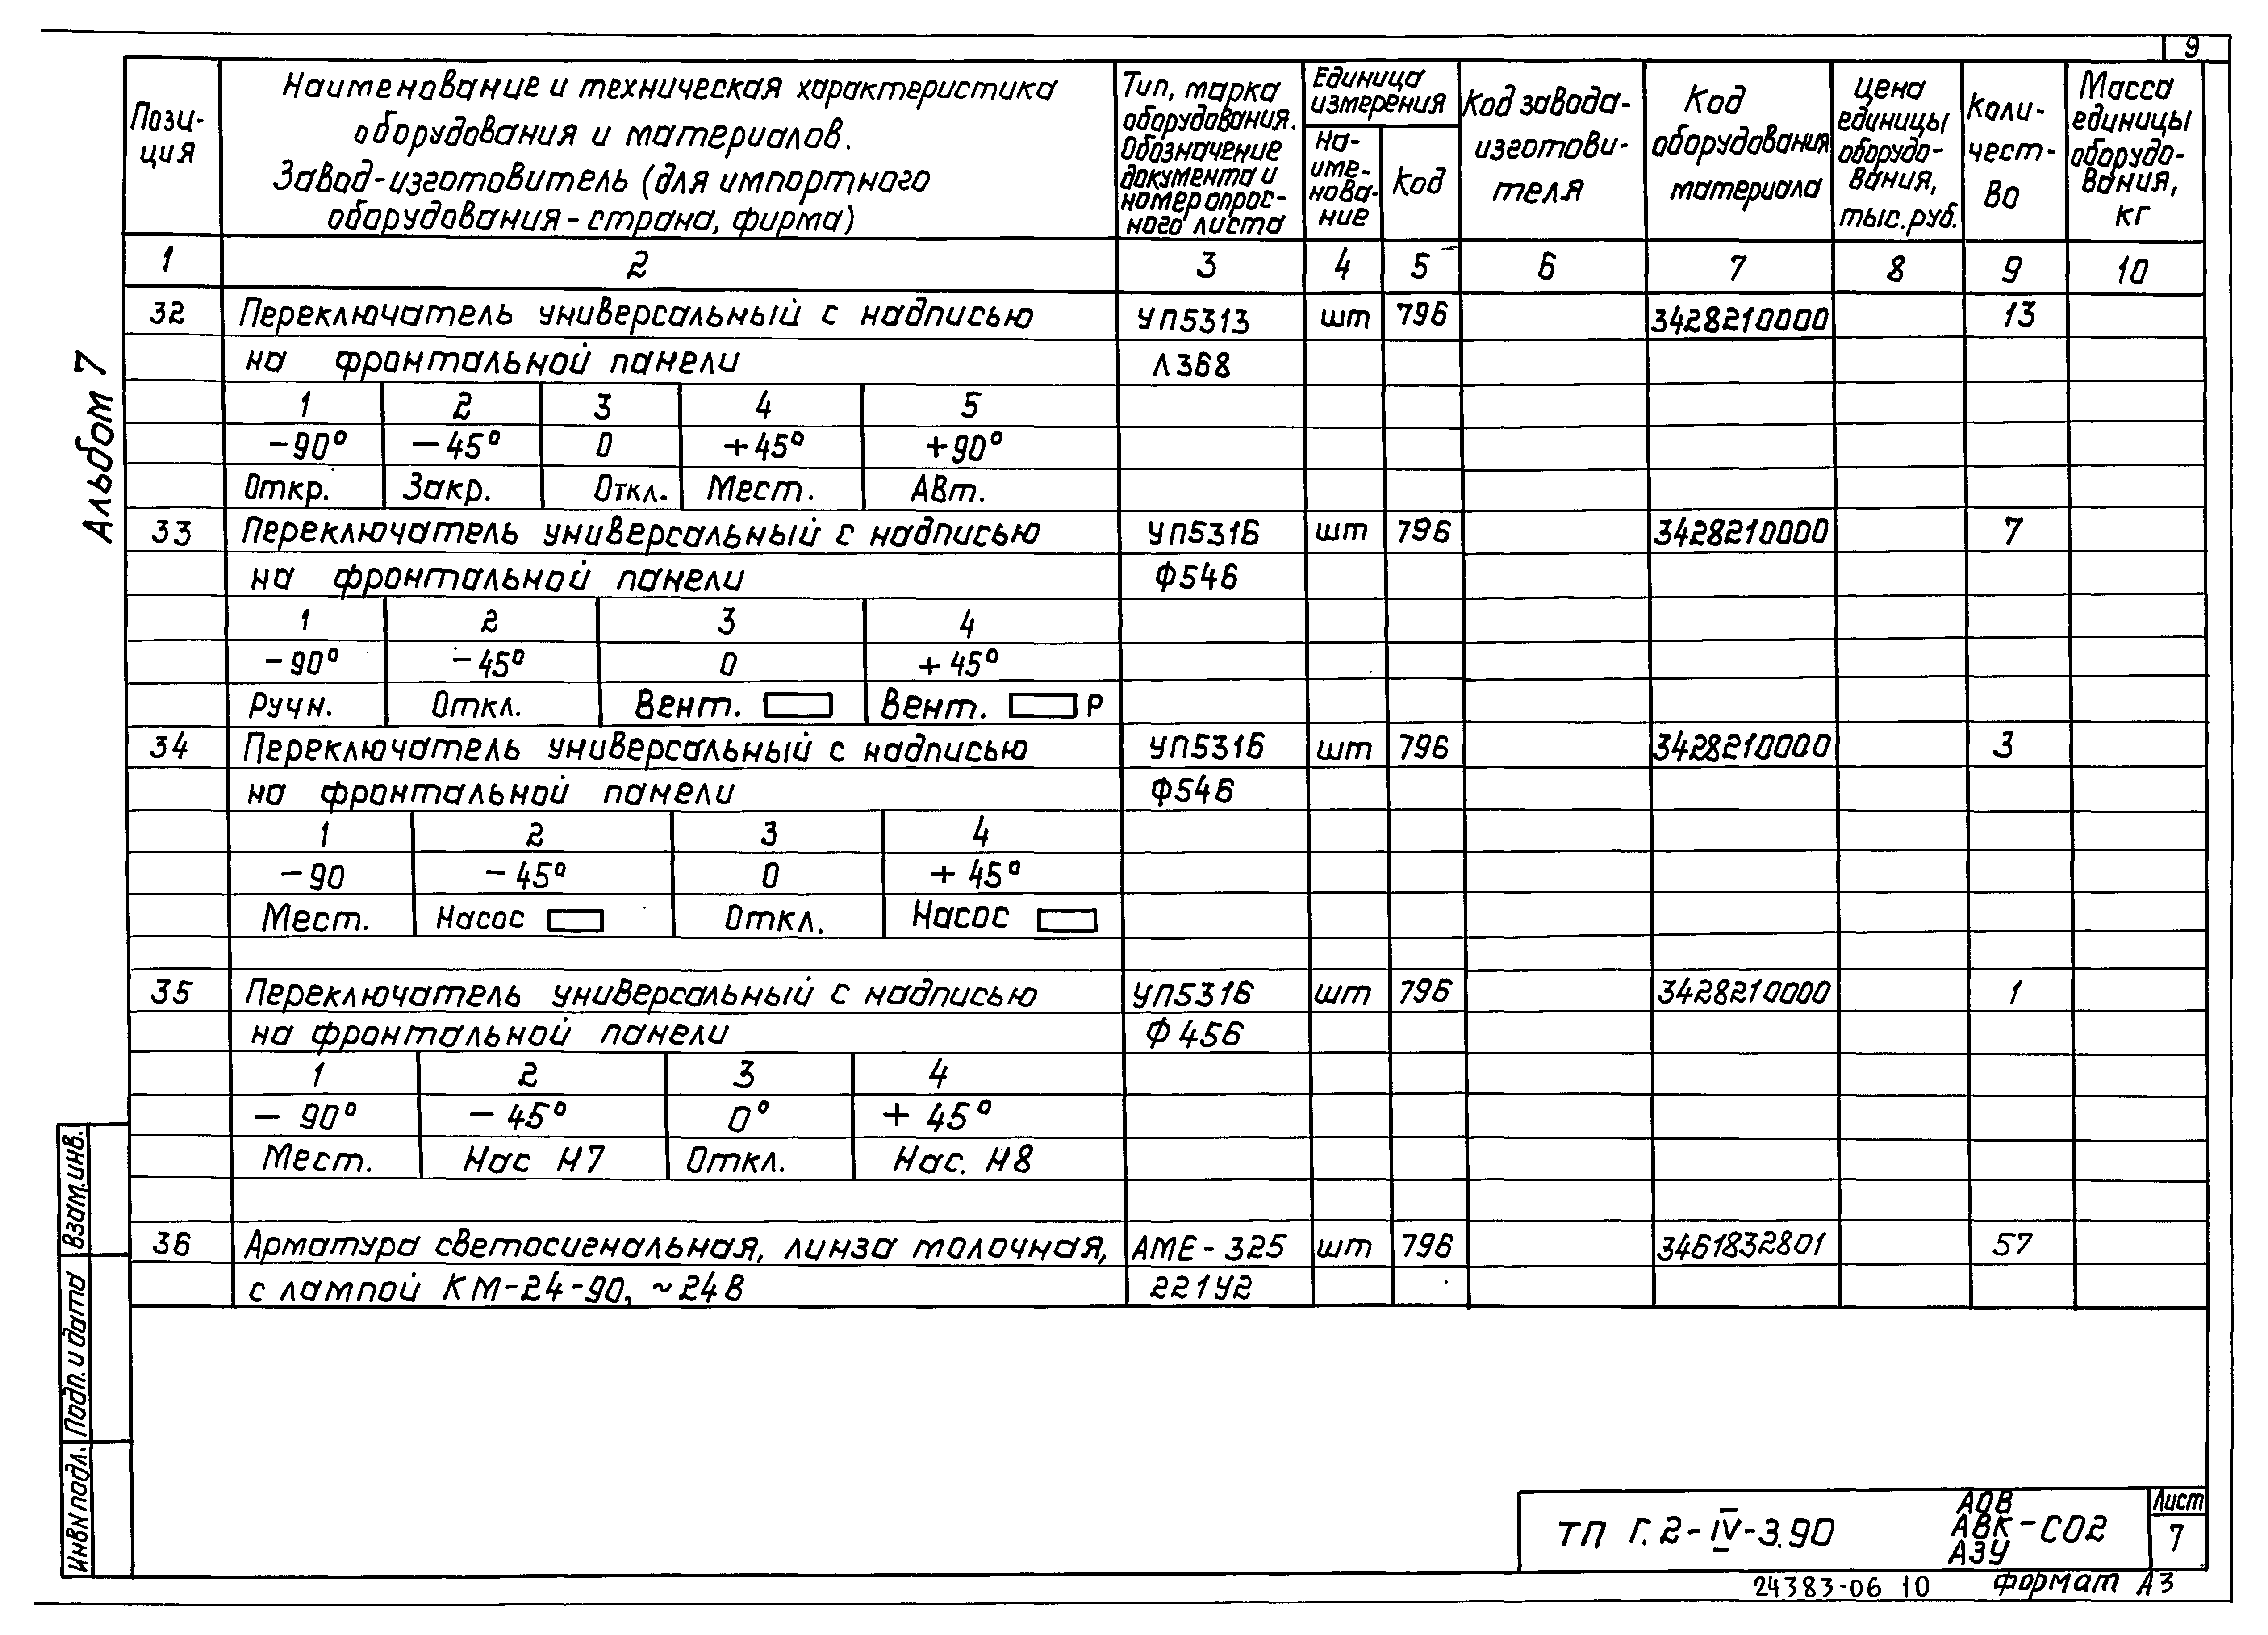 9
Пози-
ция
Наименование и техническая характеристика
оборудования и материалов.
Завод-изготовитель (для импортного
оборудования - страна, фирма)
Тип, марка
оборудования.
Обозначение
документа и
номер опрос-
ного листа
Единица
измерения
На-
име-
нова-
ние
Код
Код завода-
изготови-
теля
Код
оборудования
материала
Цена
единицы
оборудо-
вания,
тыс. руб.
Коли-
чест-
во
Масса
единицы
оборудо-
вания,
кг
1 2 3 4 5 6 7 8 9 10
32 Переключатель универсальный с надписью УП5313 шт 796 3428210000 13
на фронтальной панели Л368
1 2 3 4 5
-90° -45° 0 +45° +90°
Откр. Закр. Откл. Мест. Авт.
33 Переключатель универсальный с надписью УП5316 шт 796 3428210000 7
на фронтальной панели Ф546
1 2 3 4
-90° -45° 0 +45°
Ручн. Откл. Вент. Вент. Р
34 Переключатель универсальный с надписью УП5316 шт 796 3428210000 3
на фронтальной панели Ф546
1 2 3 4
-90 -45° 0 +45°
Мест. Насос Откл. Насос
35 Переключатель универсальный с надписью УП5316 шт 796 3428210000 1
на фронтальной панели Ф456
1 2 3 4
-90° -45° 0° +45°
Мест. Нас Н7 Откл. Нас. Н8
36 Арматура светосигнальная, линза молочная, АМЕ-325 шт 796 3461832801 57
с лампой КМ-24-90, ~24В 221У2
Альбом 7
Взам.инв.
Подп. и дата
Инв N подл.
ТП Г.2-IV-3.90
АОВ
АВК-СО2
АЗУ
Лист
7
24383-06 10
Формат А3